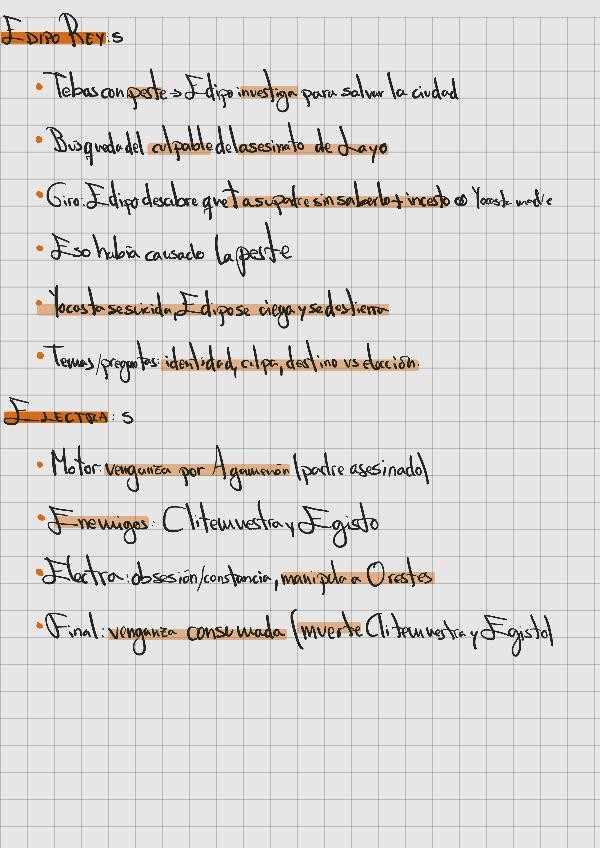 EDIPO REY: S
• Tebas con peste → Edipo investiga para salvar la ciudad
• Búsqueda del culpable del asesinato de Layo
• Giro: Edipo descubre que a su padre sin saberlo + incesto Yocasta madre
• Eso había causado la peste
• Yocasta se suicida, Edipo se ciega y se destierra
• Temas/preguntas: identidad, culpa, destino vs elección.
ELECTRA: S
• Motor: venganza por Agamenón (padre asesinado)
• Enemigos: Clitemnestra y Egisto
• Electra: obsesión/constancia, manipula a Orestes
• Final: venganza consumada (muerte Clitemnestra y Egisto)